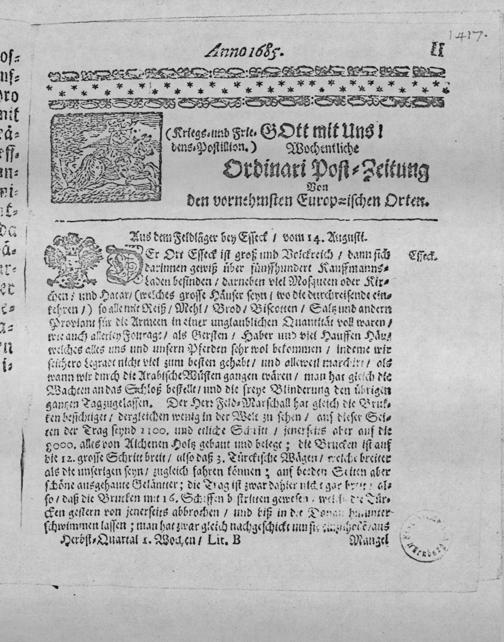 1417.
Anno 1685.
II
(Kriegs- und Frie- GOtt mit Uns!
dens-Postillion.) Wochentliche
Ordinari Post-Zeitung
Von
den vornehmsten Europæischen Orten.
Aus dem Feldläger bey Esseck / vom 14. Augusti.
DEr Ort Esseck ist groß und Volckreich / dann sich
Esseck.
darinnen gewiß über fünffhundert Kauffmanns-
Laden befinden / darneben viel Mosqueen oder Kir-
chen; und Hatar / (welches grosse Häuser seyn / wo die durchreisende ein-
kehren /) so alle mit Reiß / Mehl / Brod / Biscotten / Saltz und andern
Proviant für die Armeen in einer unglaublichen Quantität voll waren /
wie auch allerley Fourage / als Gersten / Haber und viel Hauffen Häu /
welches alles uns und unsern Pferden sehr wol bekommen / indeme wir
seithero Legrad nicht viel zum besten gehabt / und alleweil marchirt / als
wann wir durch die Arabische Wüsten gangen wären / man hat gleich die
Wachen an das Schloß bestellt / und die freye Blinderung den übrigen
gantzen Tag zugelassen. Der Herr Feld-Marschall hat gleich die Bruk-
ken besichtiget / dergleichen wenig in der Welt zu sehen / auf dieser Sei-
ten der Trag seynd 1100. und etliche Schritt / jenerseits aber auf die
8000. alles von Aichenen Holtz gebaut und belegt; die Brucken ist auf
die 12. grosse Schritt breit / also daß 3. Türckische Wägen / welche breiter
als die unserigen seyn / zugleich fahren können; auf beeden Seiten aber
schöne ausgehaute Geländer; die Trag ist zwar daher nicht gar breit / al-
so / daß die Brucken mit 16. Schiffen gewesen / welche die Tür-
cken gestern von jenerseits abbrochen / und biß in die Donau hinunter-
schwimmen lassen; man hat zwar gleich nachgeschickt um sie aus
Herbst-Quartal 1. Wochen / Lit. B
Mangel